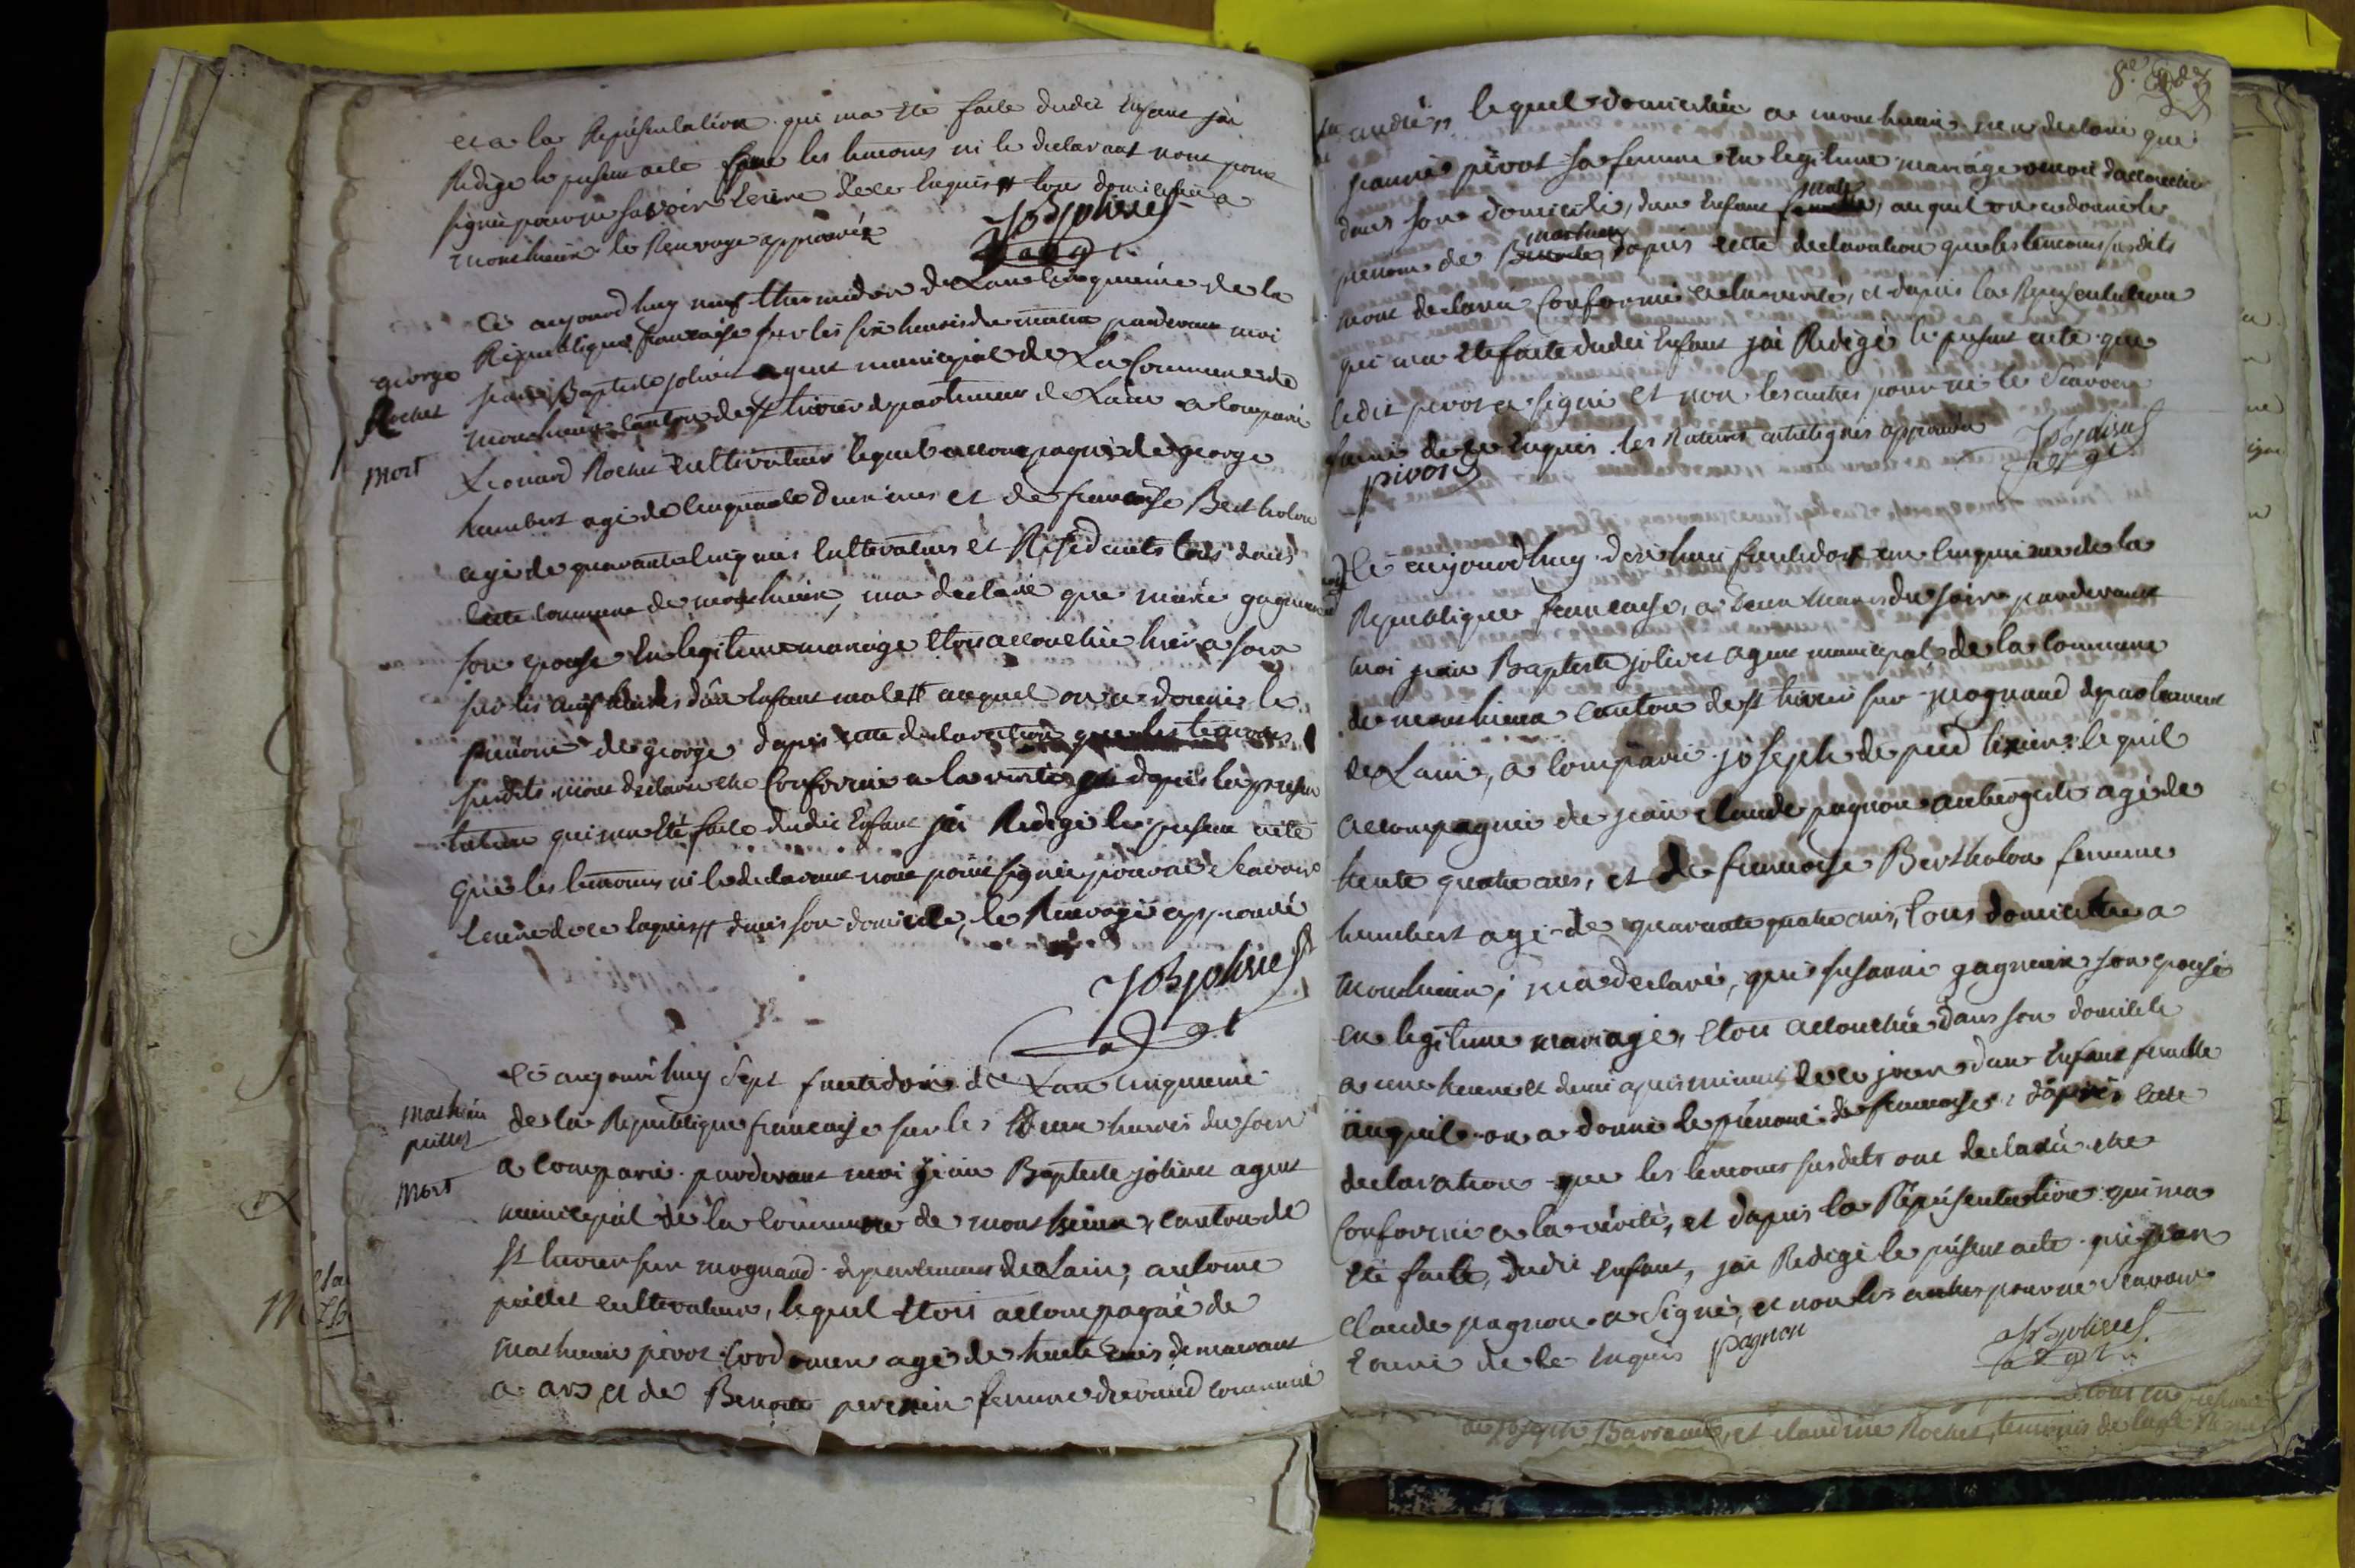 et a la Représentation qui ma été faite dudit Enfant jai
Redigé le present acte que les temoins ni le declarant nont point
signé pour ne savoir Ecrire de ce Enquis # tous domiciliés a
monthieux le Renvoye approuvé
JBJolivet
agt
Ce aujourdhuy neuf thermidor de Lan Cinquieme de la
Republique francaise sur les six heures du matin pardevant moi
george
Rochet
mort
jean Baptiste jolivet agent municipal de La Commune de
monthieux canton de st trivier departement de Lain a Comparu
Leonard Rochet Cultivateur lequel accompagné de george
humbert agé de Cinquante deux ans et de francoise Bertholon
agé de quarante Cinq ans Cultivateurs et Residents tous dans
Cette Commune de monthieux, ma declaré que marie gagneux
son epouse En legitime mariage Etoit accouchée hier a soir
sur les neuf heures dun Enfant male # auquel on a donné le
prénom de george dapres cette declaration que les temoins
susdits mont declaré etre Conforme a la verité et dapres la presen
tation qui ma Eté faite dudit Enfant jai Redigé le present acte
que les temoins ni le declarant nont point signé pour ne Scavoir
Ecrire de ce Enquis # dans son domicile, le Renvoye approuvé
JBJolivet
agt
Ce aujourdhuy Sept fructidor de Lan cinquieme
mathieu
poillet
mort
de la Republique francaise sur les deux heures du soir
a Comparu pardevant moi jean Baptiste jolivet agent
municipal de la Commune de monthieux, canton de
st trivier sur mognand departement de Lain, antoine
poillet cultivateur, lequel Etoit accompagné de
mathieu pivot Cordonnier agé de trente ans demeurant
a ars et de Benoite perenin femme dreraud Commune
8e
andré, lequel domicilié a monthieux men declaré que
jeanne pivot sa femme en legitime mariage venoit daccoucher
dans son domicile, dun Enfant male, auquel on a donné le
prenom de mathieu, dapres cette declaration que les temoins susdits
mont declaré Conforme a la verité, et dapres la Representation
qui ma Eté faite dudit Enfant jai Redigé le present acte que
ledit pivot a signé et non les autres pour ne le Scavoir
faire de ce Enquis. les Ratures interlignes approuvé
pivot JBJolivet
agt
Ce aujourdhuy dix huit fructidor an Cinquieme de la
Republique francaise, a deux heures du soir pardevant
moi jean Baptiste jolivet agent municipal de la Commune
de monthieux Canton de st trivier sur mognand departement
de Lain, a Comparu joseph de pied texier, lequel
accompagné de jean Claude pagnon aubergiste agé de
trente quatre ans, et de francoise Bertholon femme
humbert agé de quarante quatre ans, tous domicilié a
monthieux; ma declaré, que susanne gagneux son epouse
en legitime mariage, Etoit accouchée dans son domicile
a une heure et demi apres minuit de ce jour dun Enfant femelle
auquel on a donné le prénom de francoise, dapres Cette
declaration que les temoins susdits ont declaré etre
Conforme a la vérité, et dapres la Représentation qui ma
Eté faite, dudit enfant, jai Redigé le présent acte que jean
Claude pagnon a Signé, et non les autres pour ne Scavoir
Ecrire de ce Enquis pagnon
JBJolivet
agt
de joseph Barraud, et claudine Rochet, temoins de